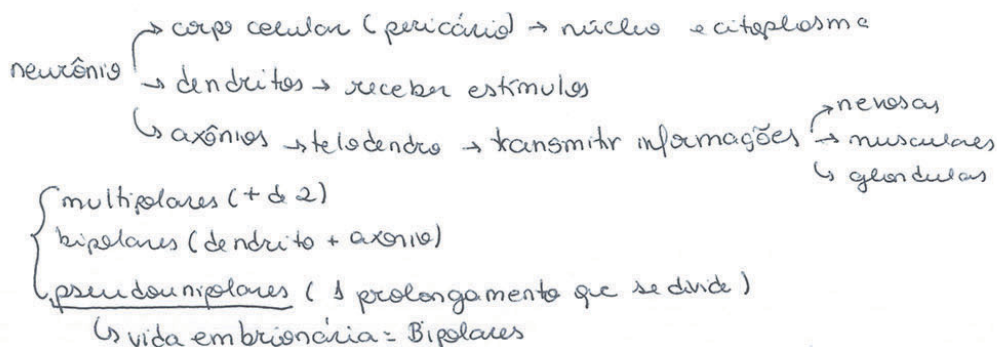 neurônio → corpo celular (pericário) → núcleo e citoplasma
→ dendritos → receber estímulos
↳ axônios → telodendro → transmitir informações → nervosas
→ musculares
↳ glândulas
multipolares (+ de 2)
bipolares (dendrito + axônio)
pseudounipolares (1 prolongamento que se divide)
↳ vida embrionária = Bipolares